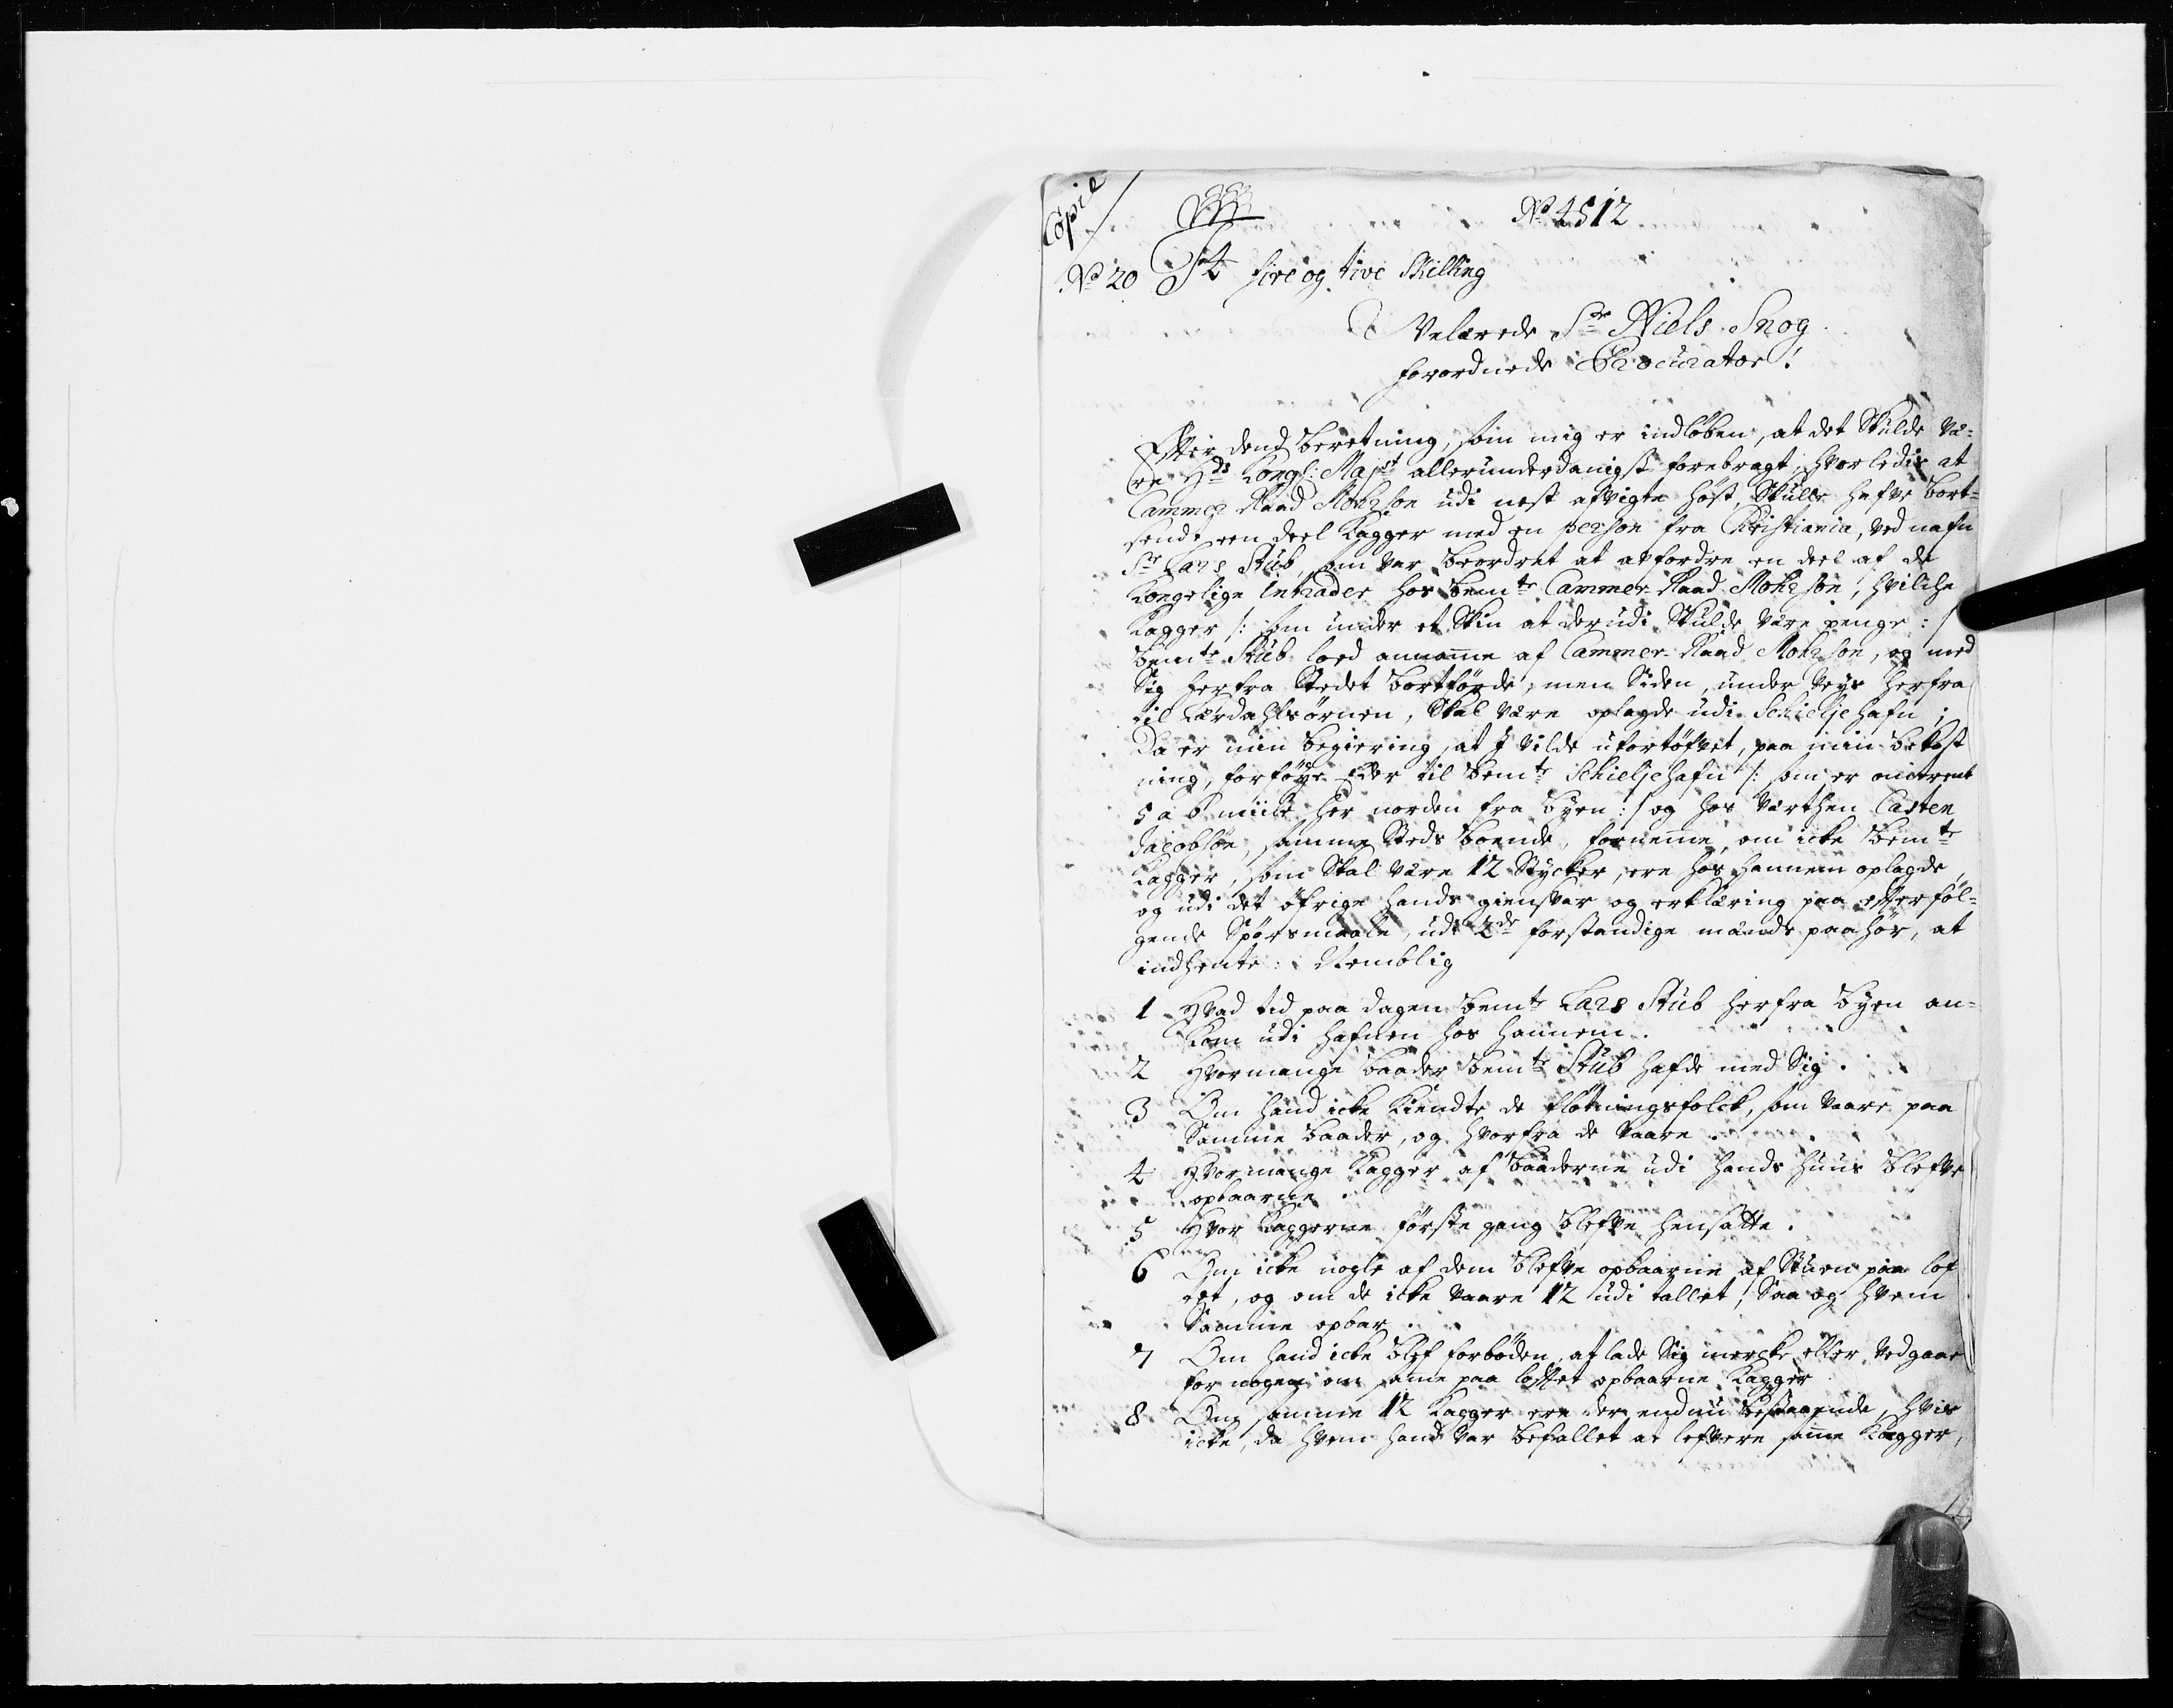 Copie
No 4512
No 20 24 fire og tive Skilling
Velærede Sr Niels Snog
forordnede Procurator!
Efter dend beretning, som mig er indløben, at det Skulde væ=
re Hds Kongl: Mayst allerunderdanigst forebragt, hvorledis at
Cammer Raad Mohrson udi nest afvigte høst, Skulle hafve bort=
sendt een deel Kagger med en person fra Christiania, ved nafn
Sr Lars Stub, som var beordret at affordre en deel af de
Kongelige intrader hos bemte Cammer-Raad Mohrson, hvilche
Kagger /: som under et Skin at derudi Skulde være penge :/
bemte Stub loed annamme af Cammer-Raad Mohrson, og med
Sig her fra Stedet bortførde, men Siden, under veys herfra
til Lærdahlsørnen, Skal være oplagde udi Schieljehafn;
Da er min begiering, at I vilde ufortøfvet, paa min bekost
ning, forføye Eder til bemte Schieljehafn /: som er omtrent
5 a 6 miile her norden fra byen :/ og hos verthen Casten
Jacobsøn, samme Steds boende, fornemme, om icke bemte
Kagger, som Skal være 12 Stycker, ere hos hannem oplagde,
og udi det øfrige hands giensvar og erklæring paa efterføl=
gende Spørsmaale, udi 2de forstandige mænds paahør, at
indhente: Nemblig
1 Hvad tid paa dagen bemte Lars Stub her fra byen an=
kom udi hafnen hos hannem.
2 Hvormange baader bemte Stub hafde med Sig.
3 Om hand icke kiendte de fløtningsfolck, som vaare paa
Samme baader, og hvorfra de vaare.
4 Hvormange Kagger af baaderne udi hands huus blefve
opbaarne.
5 Hvor Kaggerne første gang blefve hensatte.
6 Om icke nogle af dem blefve opbaarne af Stuen paa lof
tet, og om de icke vaare 12 udi tallet, Saa og hvem
Samme opbar.
7 Om hand icke blef forboden, at lade Sig mercke eller vedgaae
for nogen om samme paa loftet opbaarne Kagger
8 Om samme 12 Kagger ere der endnu bestaaende, hvis
icke, da hvem hand var befallet at lefvere samme Kagger,